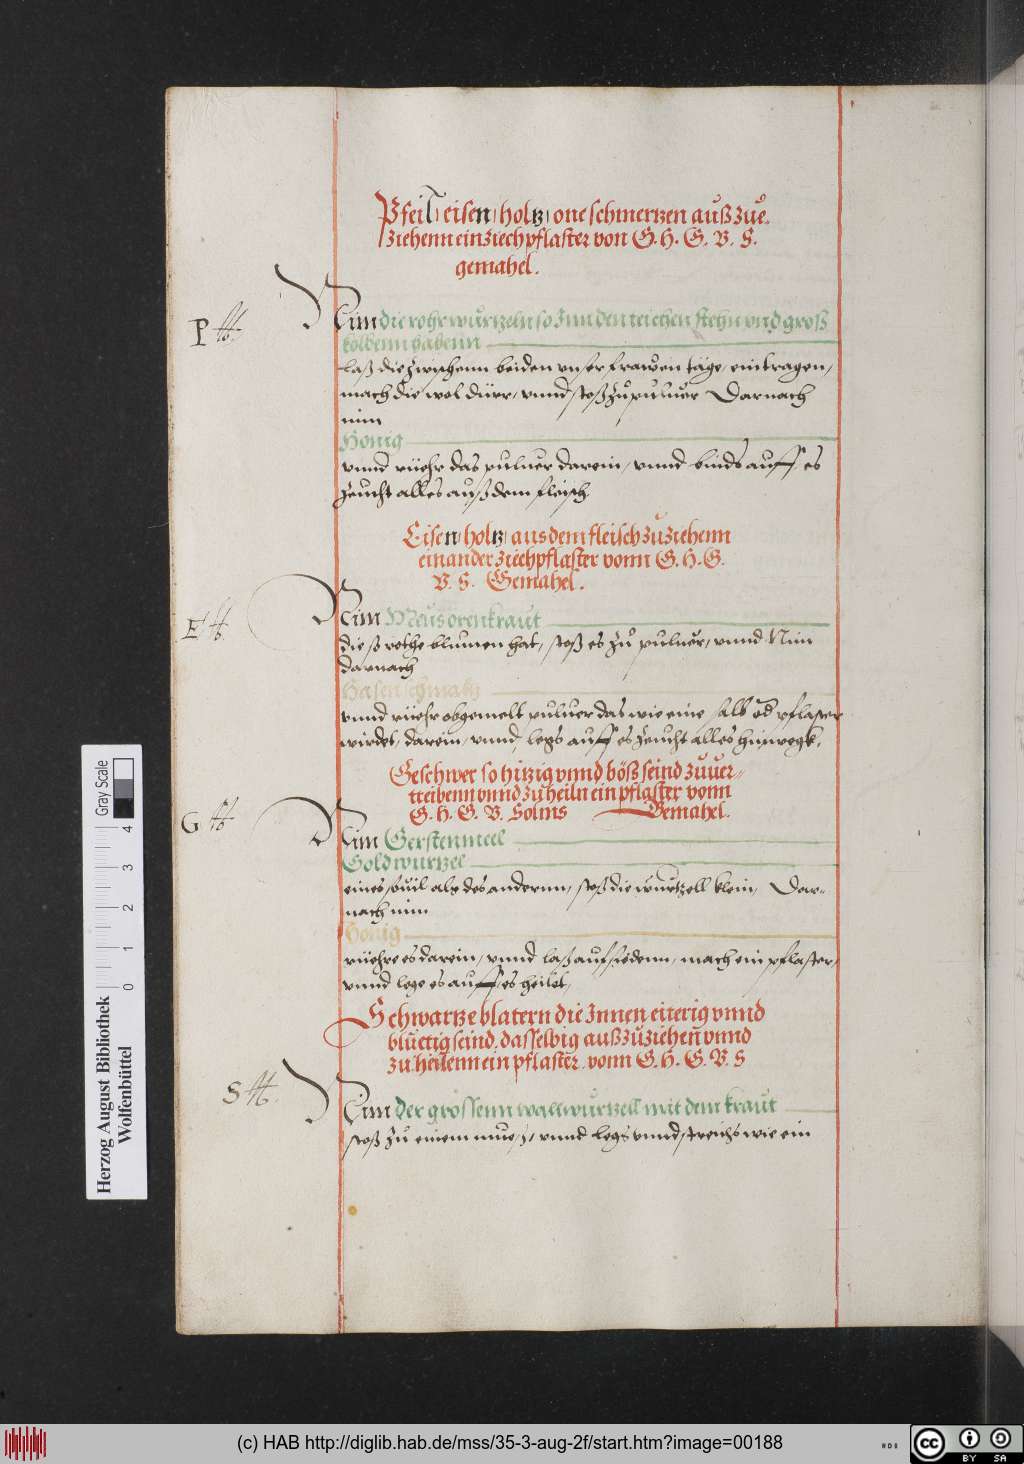 Pfeil, eisen, holtz, one schmertzen auß zue
ziehenn ein ziechpflaster von G. H. G. V. S.
gemahel.
P
Nim die rohrwurtzeln so Inn den teichen stehn vnd groß
kolbenn habenn
laß die zwischenn beiden vnser frawen täge, eintragen,
mach die wol dürr, vnnd stoß zu puluer Darnach
nim
Honig
vnnd rüehr das puluer darein, vnnd binds auff, es
zeucht alles auß dem fleisch
Eisen, holtz, aus dem fleisch zuziehenn
ein ander ziechpflaster vonn G. H. G.
V. S. Gemahel.
E
Nim Meusorenkraut
die ß rothe blumen hat, stoß es zu puluer, vnnd Nim
darnach
Hasenschmaltz
vnnd rüehr obgemelt puluer das wie eine salb od pflaster
wirdet, darein, vnnd legs auff es zeucht alles hinwegk.
Geschwer so hitzig vnnd böß seind zuuer-
treibenn vnnd zu heiln ein pflaster vonn
G. H. G. V. Solms Gemahel.
G
Nim Gerstenmeel
Goldwurtzel
eines souil alß des andernn, stoß die wurtzell klein, Dar-
nach nim
Honig
rüehre es darein, vnnd laß auf siedenn, mach ein pflaster,
vnnd lege es auff, es heilet,
Schwartze blatern die Innen eiterig vnnd
bluetig seind, dasselbig auß zuziehen vnnd
zu heilenn ein pflaster. vonn G. H. G. V. S
S
Nim der grössenn wallwurtzell mit dem kraut
stoß zu einem mues, vnnd legs vnnd streichs wie ein
Herzog August Bibliothek
Wolfenbüttel
0 1 2 3 4
Gray Scale
(c) HAB http://diglib.hab.de/mss/35-3-aug-2f/start.htm?image=00188
cc BY SA